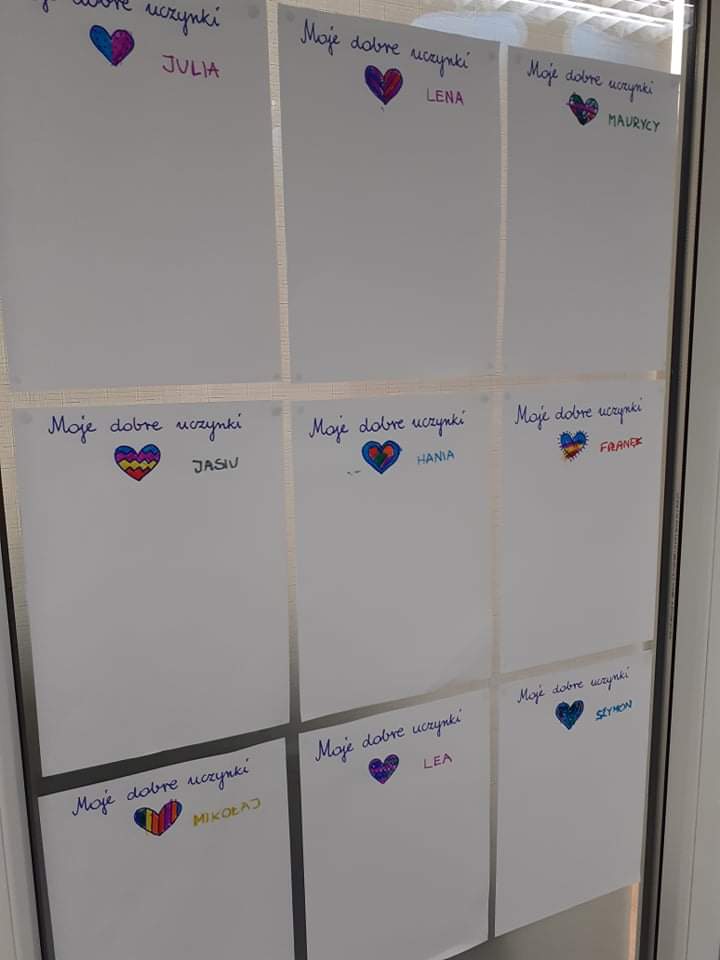 Moje dobre uczynki
JULIA
Moje dobre uczynki
LENA
Moje dobre uczynki
MAURYCY
Moje dobre uczynki
JASIU
Moje dobre uczynki
HANIA
Moje dobre uczynki
FRANEK
Moje dobre uczynki
MIKOŁAJ
Moje dobre uczynki
LEA
Moje dobre uczynki
SZYMON